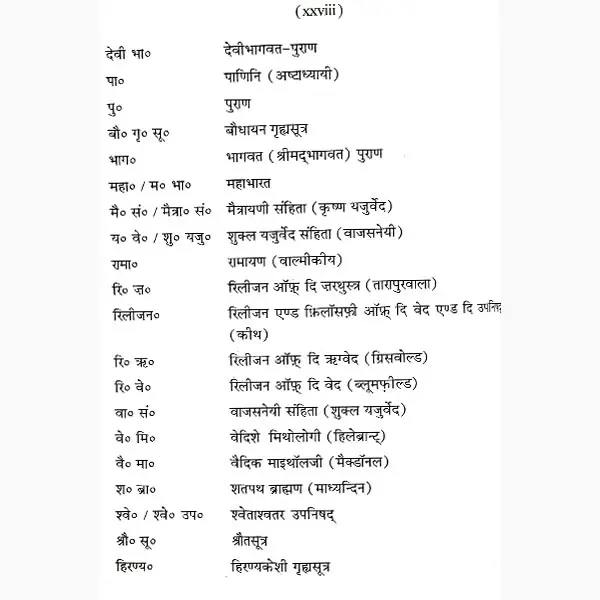 (xxviii)
देवी भा० देवीभागवत-पुराण
पा० पाणिनि (अष्टाध्यायी)
पु० पुराण
बौ० गृ० सू० बौधायन गृह्यसूत्र
भाग० भागवत (श्रीमद्‌भागवत) पुराण
महा० / म० भा० महाभारत
मै० सं० / मैत्रा० सं० मैत्रायणी संहिता (कृष्ण यजुर्वेद)
य० वे० / शु० यजु० शुक्ल यजुर्वेद संहिता (वाजसनेयी)
रामा० रामायण (वाल्मीकीय)
रि० ज़० रिलीजन ऑफ़् दि ज़रथुस्त्र (तारापुरवाला)
रिलीजन० रिलीजन एण्ड फ़िलॉसफ़ी ऑफ़् दि वेद एण्ड दि उपनिषद्
(कीथ)
रि० ऋ० रिलीजन ऑफ़् दि ऋग्वेद (ग्रिसवोल्ड)
रि० वे० रिलीजन ऑफ़् दि वेद (ब्लूमफ़ील्ड)
वा० सं० वाजसनेयी संहिता (शुक्ल यजुर्वेद)
वे० मि० वेदिशे मिथोलोगी (हिलेब्रान्ट्)
वै० मा० वैदिक माइथॉलजी (मैक्डॉनल)
श० ब्रा० शतपथ ब्राह्मण (माध्यन्दिन)
श्वे० / श्वे० उप० श्वेताश्वतर उपनिषद्
श्रौ० सू० श्रौतसूत्र
हिरण्य० हिरण्यकेशी गृह्यसूत्र